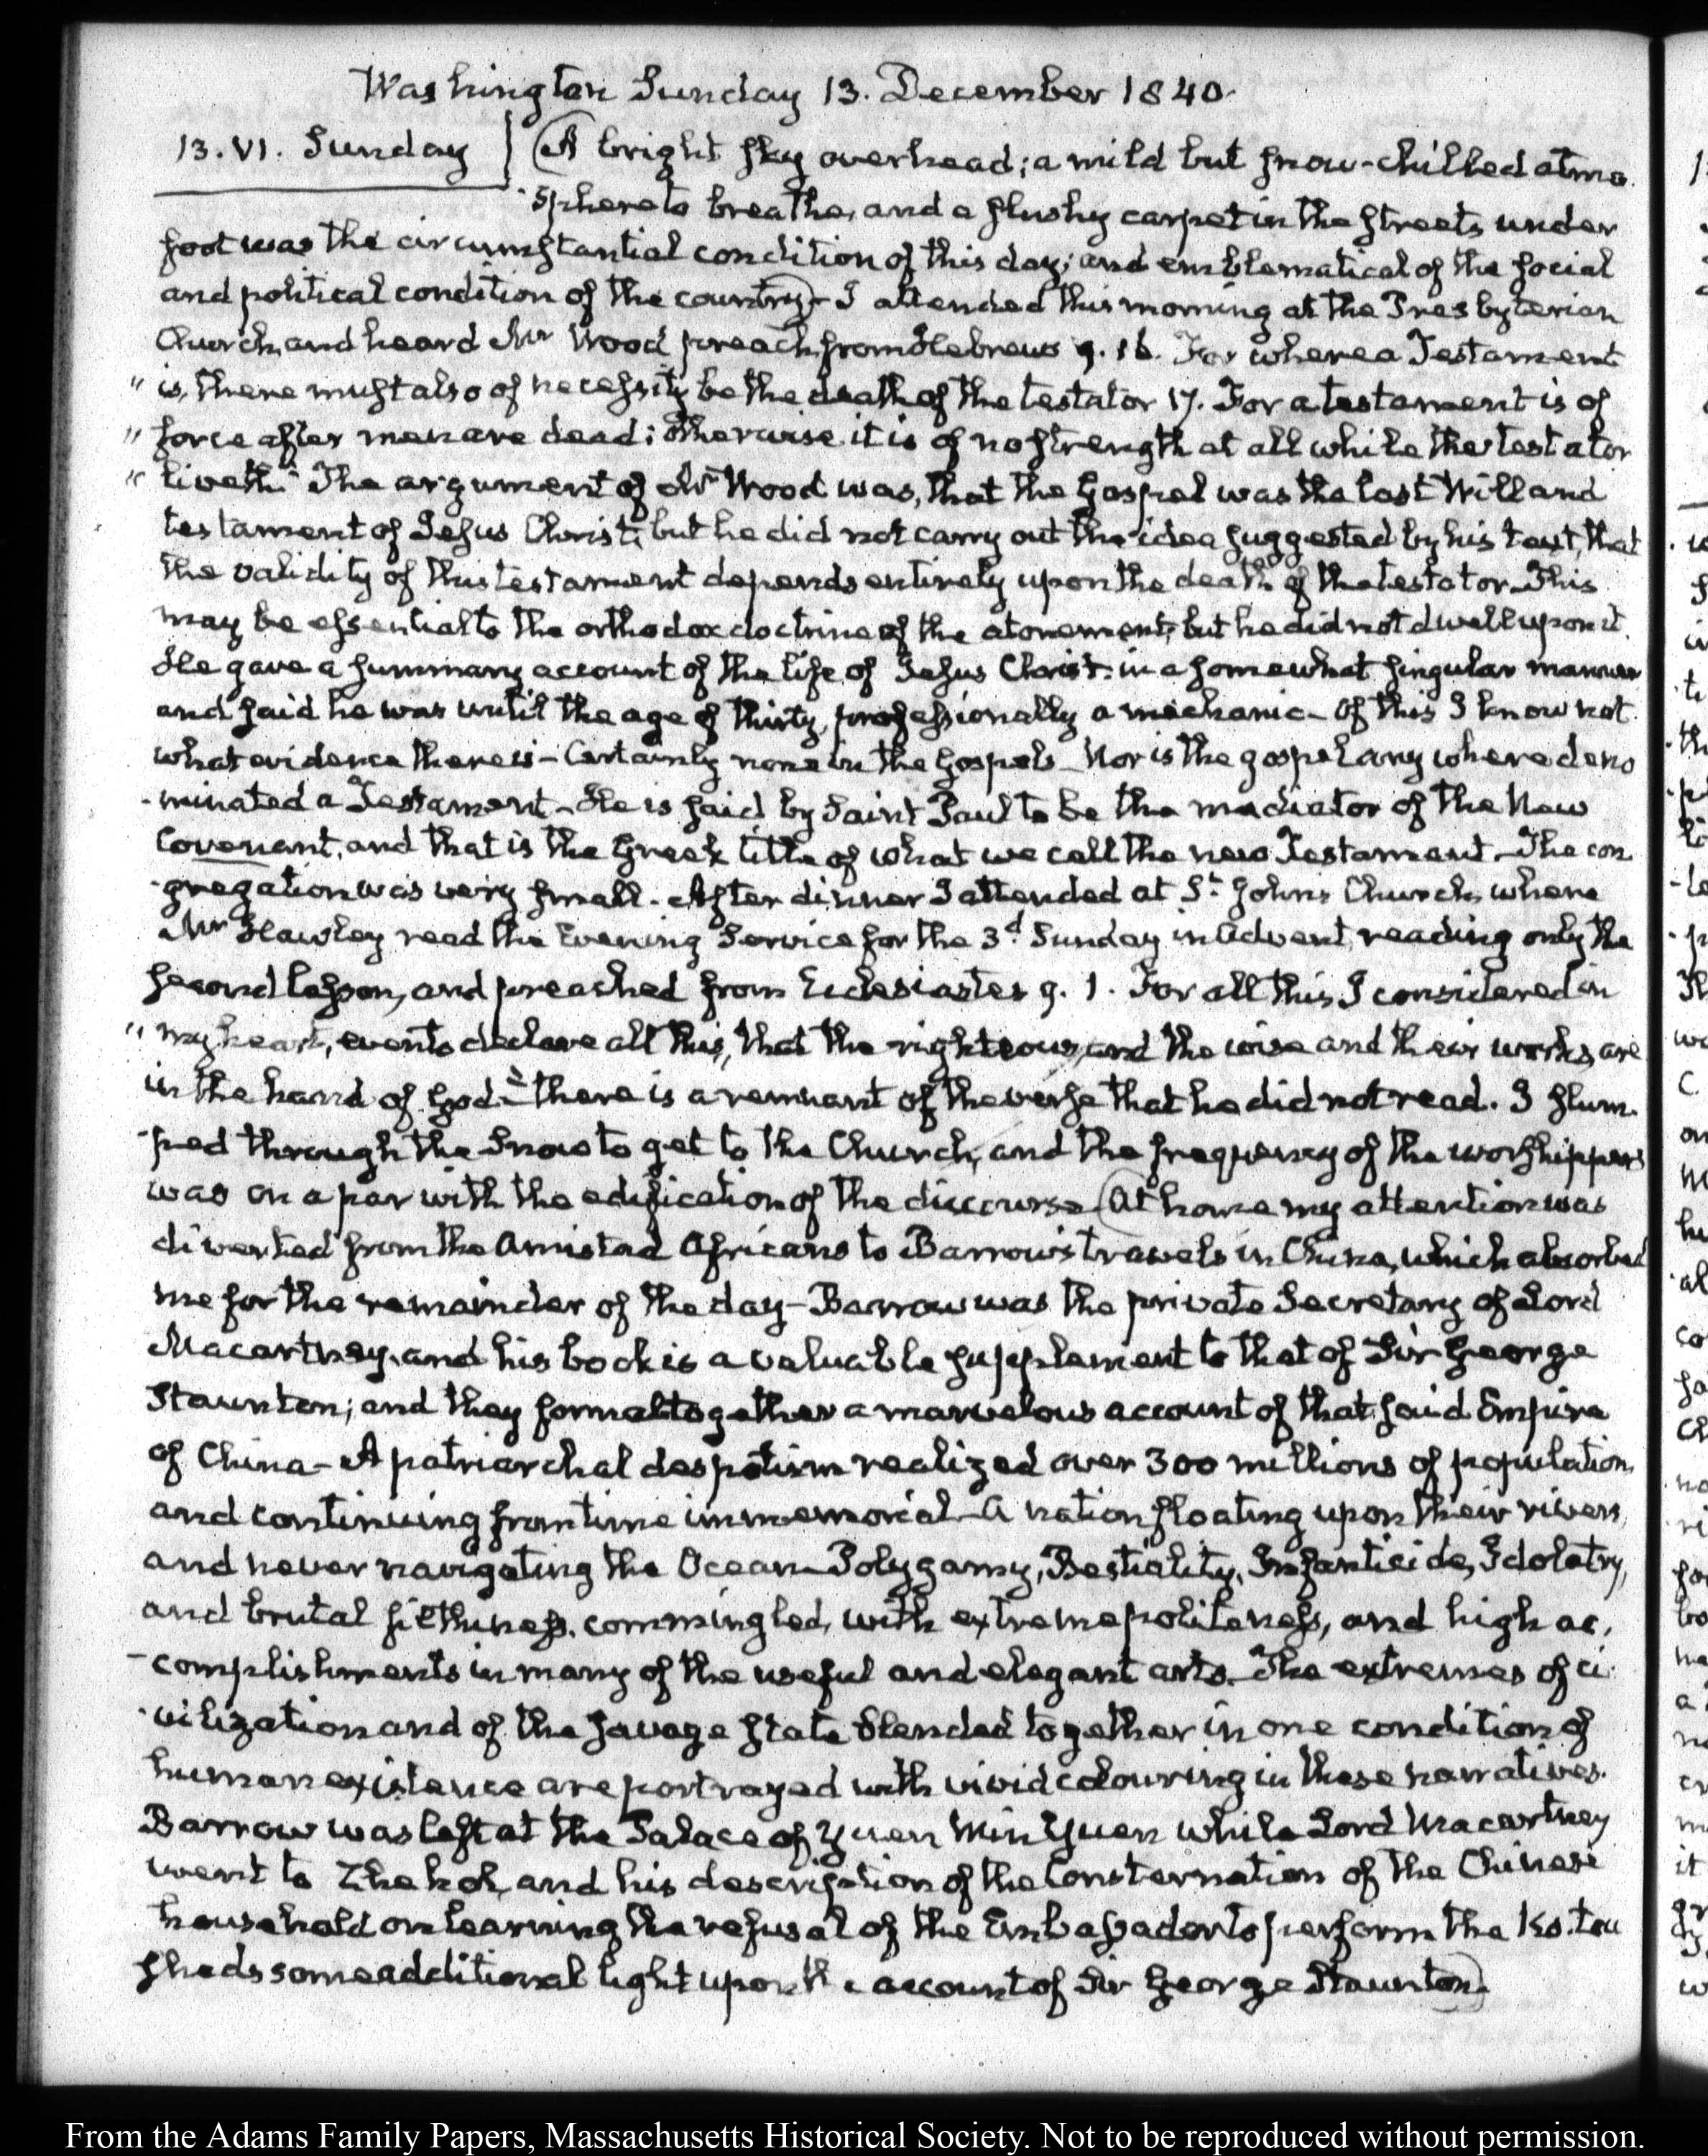 Washington Sunday 13. December 1840.
13. VI. Sunday
A bright sky overhead; a mild but snow-chilled atmo
-sphere to breathe, and a slushy carpet in the streets under
foot was the circumstantial condition of this day; and emblematical of the social
and political condition of the country - I attended this morning at the Presbyterian
Church, and heard Mr Wood preach from Hebrews 9. 16. For where a Testament
" is, there must also of necessity be the death of the testator 17. For a testament is of
" force after men are dead: otherwise it is of no strength at all while the testator
" liveth." The argument of Mr Wood was, that the Gospel was the last Will and
testament of Jesus Christ; but he did not carry out the idea suggested by his text, that
the validity of this testament depends entirely upon the death of the testator. This
may be essential to the orthodox doctrine of the atonement; but he did not dwell upon it.
He gave a summary account of the life of Jesus Christ in a somewhat singular manner
and said he was until the age of thirty, professionally a mechanic - Of this I know not
what evidence there is - Certainly none in the Gospels - Nor is the gospel any where deno
-minated a Testament - He is said by Saint Paul to be the mediator of the New
Covenant, and that is the Greek title of what we call the new Testament - The con
-gregation was very small. After dinner I attended at St Johns Church, where
Mr Hawley read the Evening Service for the 3d Sunday in Advent, reading only the
second lesson, and preached from Ecclesiastes 9. 1. For all this I considered in
" my heart, even to declare all this, that the righteous, and the wise and their works, are
in the hand of God" - there is a remnant of the verse that he did not read. I slum
-ped through the Snow to get to the Church, and the frequency of the worshippers
was on a par with the edification of the discourse (At home my attention was
diverted from the Amistad Africans to Barrow's travels in China, which absorbed
me for the remainder of the day - Barrow was the private Secretary of Lord
Macartney, and his book is a valuable supplement to that of Sir George
Staunton; and they form altogether a marvelous account of that said Empire
of China - A patriarchal despotism realized over 300 millions of population,
and continuing from time immemorial - A nation floating upon their rivers,
and never navigating the Ocean - Polygamy, Bestiality, Infanticide, Idolatry,
and brutal filthiness, commingled, with extreme politeness, and high ac
-complishments in many of the useful and elegant arts. The extremes of ci
-vilization and of the savage state blended together in one condition of
human existence are portrayed with vivid colouring in these narratives.
Barrow was left at the Palace of Yuen Min Yuen while Lord Macartney
went to Zhehol, and his description of the Consternation of the Chinese
household on learning the refusal of the Embassador to perform the Ko-tou
sheds some additional light upon the account of Sir George Staunton)
From the Adams Family Papers, Massachusetts Historical Society. Not to be reproduced without permission.